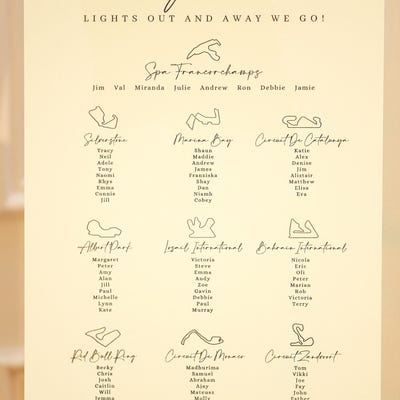 LIGHTS OUT AND AWAY WE GO!
Spa Francorchamps
Jim Val Miranda Julie Andrew Ron Debbie Jamie
Silverstone
Tracy
Neil
Adele
Tony
Naomi
Rhys
Emma
Connie
Jill
Marina Bay
Shaun
Maddie
Andrew
James
Franziska
Shay
Dan
Niamh
Cobey
Circuit De Catalunya
Katie
Alex
Denise
Jim
Alistair
Matthew
Elisa
Eva
Albert Park
Margaret
Peter
Amy
Alan
Jill
Paul
Michelle
Lynn
Kate
Losail International
Victoria
Steve
Emma
Andy
Zoe
Gavin
Debbie
Paul
Murray
Bahrain International
Nicola
Eric
Oli
Peter
Marian
Rob
Victoria
Terry
Red Bull Ring
Becky
Chris
Josh
Caitlin
Will
Jemma
Circuit De Monaco
Madhurima
Samuel
Abraham
Ajay
Mateusz
Molly
Circuit Zandvoort
Tom
Vikki
Joe
Fay
John
Esther